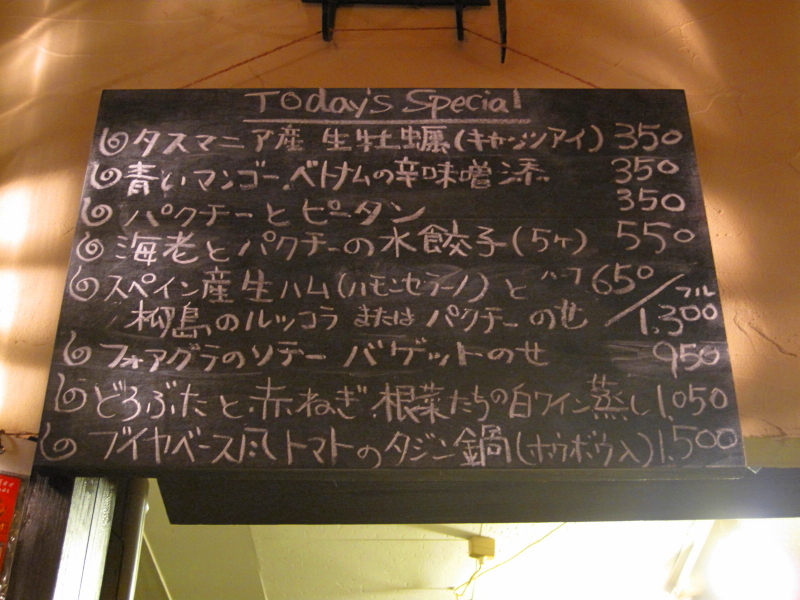 Today's Special
タスマニア産 生牡蠣(キャンツアイ) 350
青いマンゴー、ベトナムの辛味噌添 350
パクチーとピータン 350
海老とパクチーの水餃子(5ヶ) 550
スペイン産生ハム(ハモンセラーノ)と ハーフ650/フル
柳島のルッコラ または パクチーのせ 1,300
フォアグラのソテー バゲットのせ 950
どろぶたと、赤ねぎ、根菜たちの白ワイン蒸し 1,050
ブイヤベース風トマトのタジン鍋(ホウボウ入) 1,500